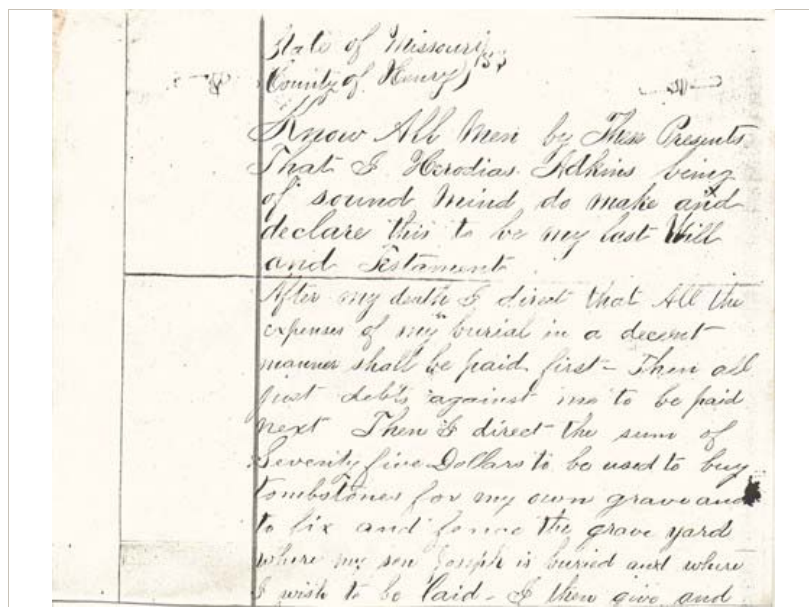 State of Missouri } SS
County of Henry
Know All Men by These Presents
That I Herodias Adkins being
of sound Mind do make and
declare this to be my last Will
and Testament
After my death I direct that All the
expenses of my burial in a decent
manner shall be paid first – Then all
just debts against me to be paid
next Then I direct the sum of
Seventy five Dollars to be used to buy
tombstones for my own grave and
to fix and fence the grave yard
where my son Joseph is buried and where
I wish to be laid – I then give and